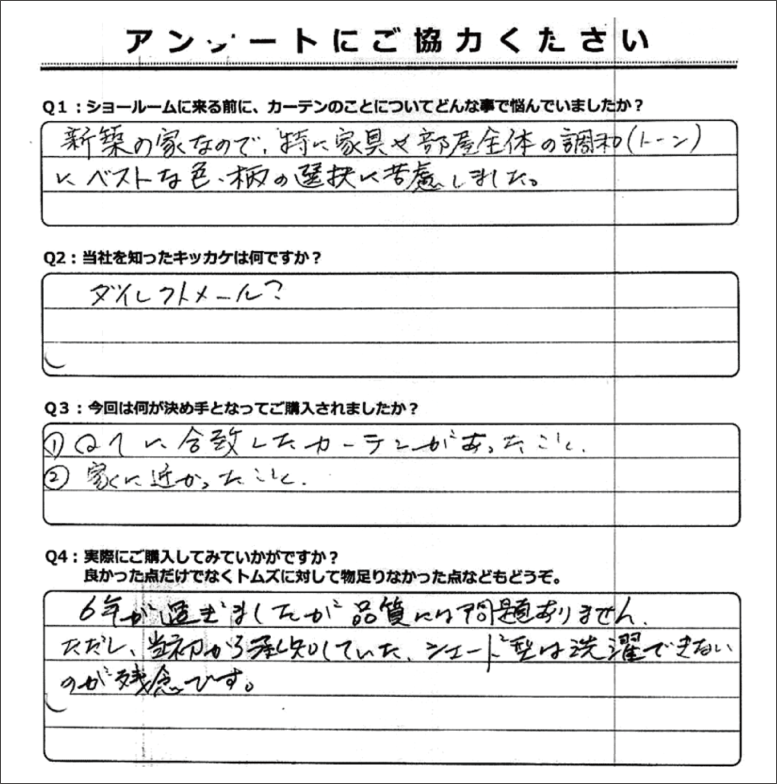 アンケートにご協力ください
Q1：ショールームに来る前に、カーテンのことについてどんな事で悩んでいましたか？
新築の家なので、特に家具や部屋全体の調和(トーン)
にベストな色、柄の選択に苦慮しました。
Q2：当社を知ったキッカケは何ですか？
ダイレクトメール？
Q3：今回は何が決め手となってご購入されましたか？
① Q1に合致したカーテンがあったこと.
② 家に近かったこと.
Q4：実際にご購入してみていかがですか？
良かった点だけでなくトムズに対して物足りなかった点などもどうぞ。
6年が過ぎましたが品質には問題ありません.
ただし、当初から承知していた、シェード型は洗濯できない
のが残念です。